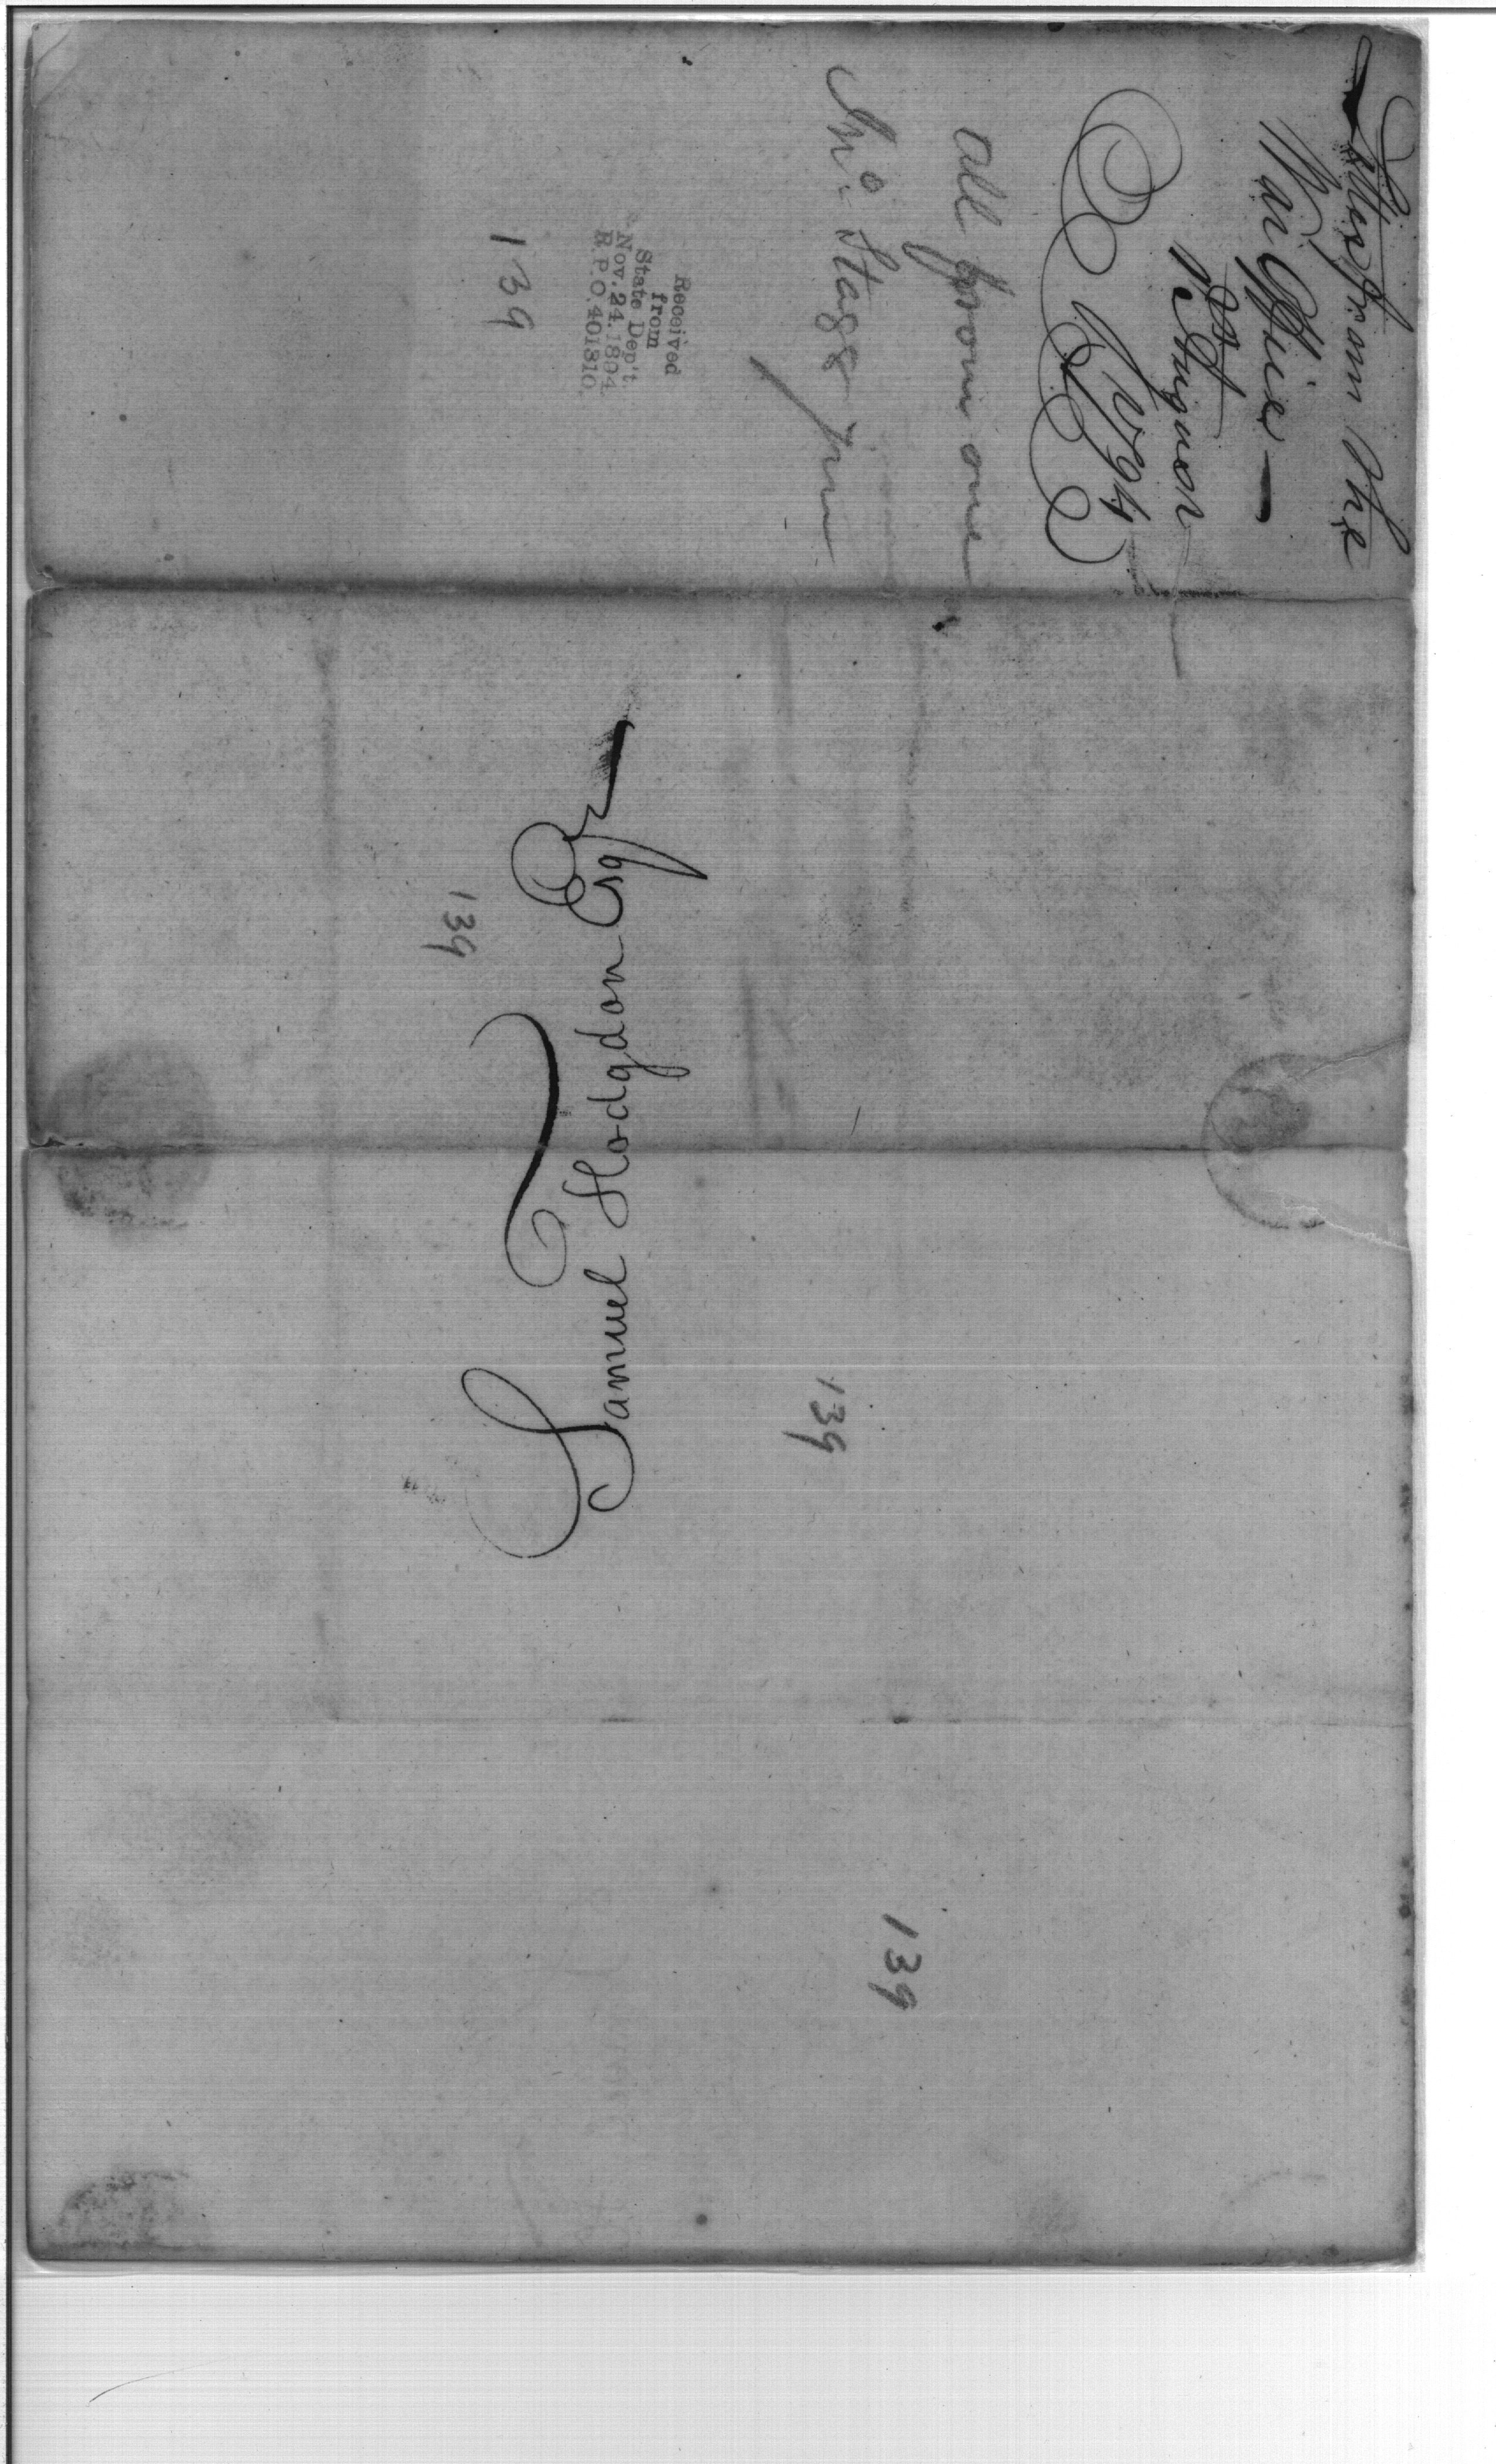 Letters from the
War Office —
23d August
1794
all from one
Jno. Stagg Jun
Received
from
State Dep't.
Nov. 24. 1894.
R. P. O. 401810.
139
Samuel Hodgdon Esqr
139
139
139